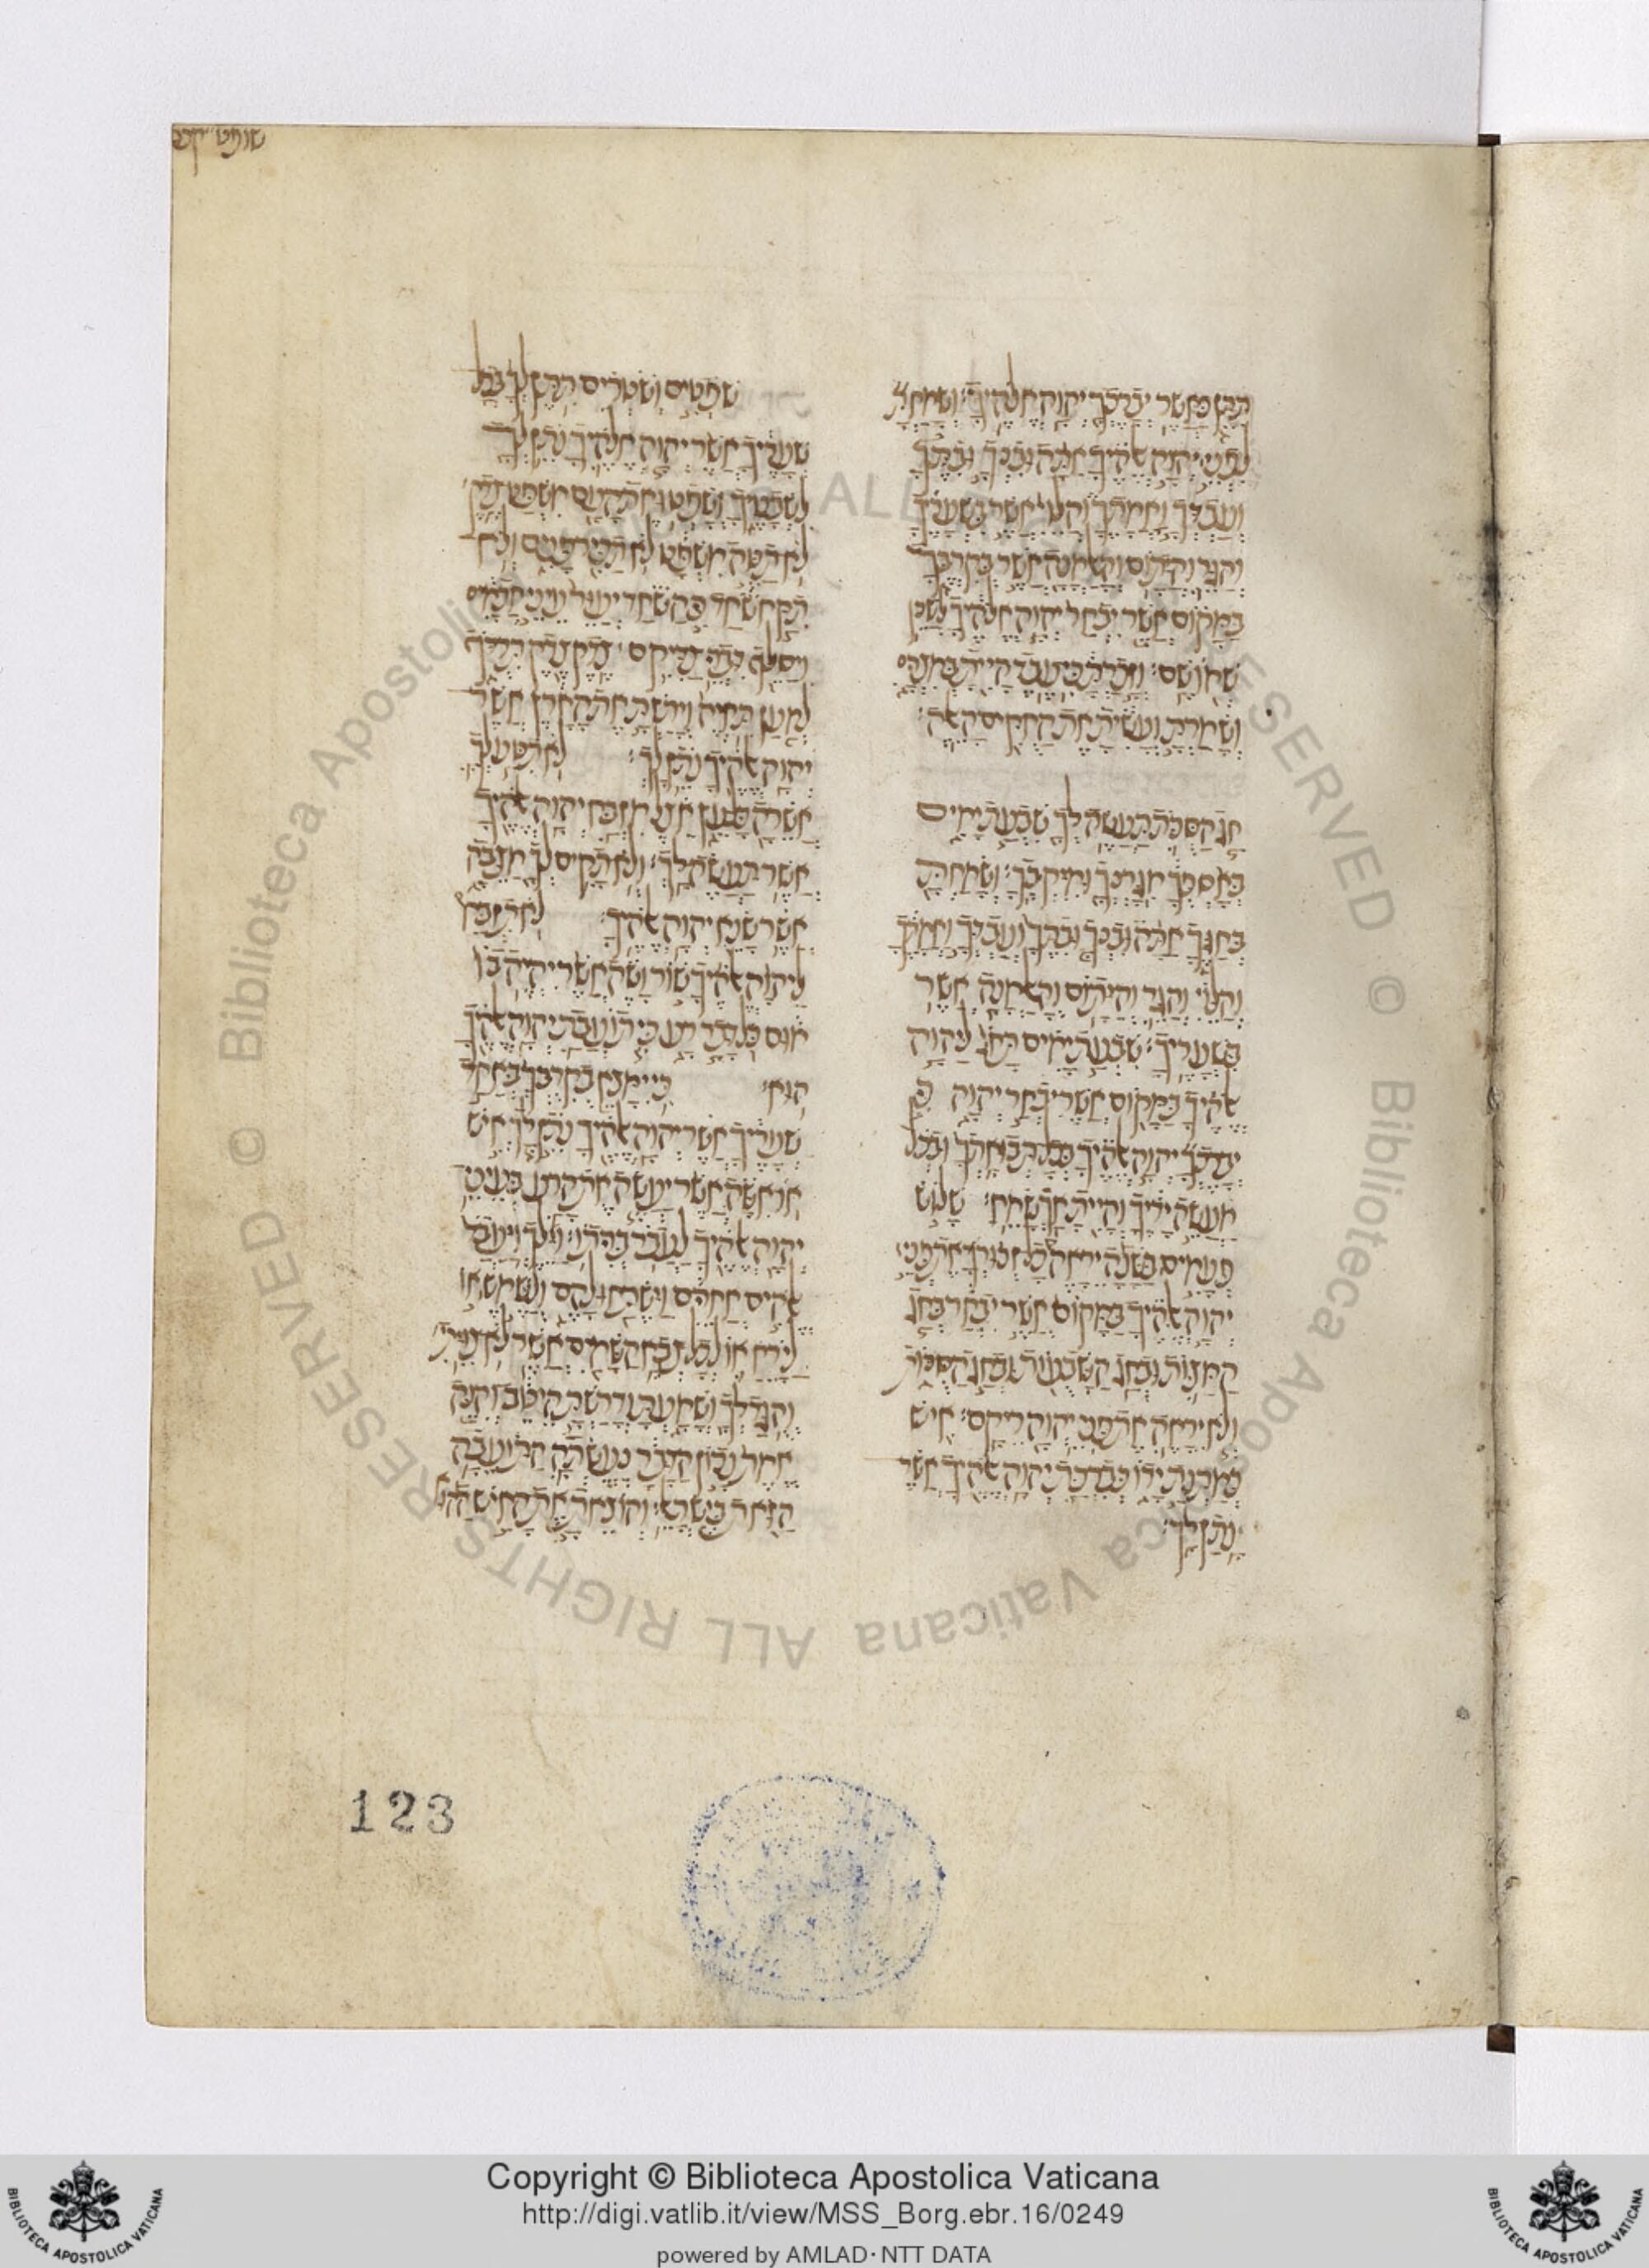 שופט
תתן כאשר יברכך יהוה אלהיך׃ ושמחת
לפני יהוה אלהיך אתה ובנך ובתך
ועבדך ואמתך והלוי אשר בשעריך
והגר והיתום והאלמנה אשר בקרבך
במקום אשר יבחר יהוה אלהיך לשכן
שמו שם׃ וזכרת כי עבד היית במצרים
ושמרת ועשית את החקים האלה׃
חג הסכת תעשה לך שבעת ימים
באספך מגרנך ומיקבך׃ ושמחת
בחגך אתה ובנך ובתך ועבדך ואמתך
והלוי והגר והיתום והאלמנה אשר
בשעריך׃ שבעת ימים תחג ליהוה
אלהיך במקום אשר יבחר יהוה כי
יברכך יהוה אלהיך בכל תבואתך ובכל
מעשה ידיך והיית אך שמח׃ שלוש
פעמים בשנה יראה כל זכורך את פני
יהוה אלהיך במקום אשר יבחר בחג
המצות ובחג השבעות ובחג הסכות
ולא יראה את פני יהוה ריקם׃ איש
כמתנת ידו כברכת יהוה אלהיך אשר
נתן לך׃
שפטים ושטרים תתן לך בכל
שעריך אשר יהוה אלהיך נתן לך
לשבטיך ושפטו את העם משפט צדק׃
לא תטה משפט לא תכיר פנים ולא
תקח שחד כי השחד יעור עיני חכמים
ויסלף דברי צדיקם׃ צדק צדק תרדף
למען תחיה וירשת את הארץ אשר
יהוה אלהיך נתן לך׃ לא תטע לך
אשרה כל עץ אצל מזבח יהוה אלהיך
אשר תעשה לך׃ ולא תקים לך מצבה
אשר שנא יהוה אלהיך׃ לא תזבח
ליהוה אלהיך שור ושה אשר יהיה בו
מום כל דבר רע כי תועבת יהוה אלהיך
הוא׃ כי ימצא בקרבך באחד
שעריך אשר יהוה אלהיך נתן לך איש
או אשה אשר יעשה את הרע בעיני
יהוה אלהיך לעבר בריתו׃ וילך ויעבד
אלהים אחרים וישתחו להם ולשמש או
לירח או לכל צבא השמים אשר לא צויתי׃
והגד לך ושמעת ודרשת היטב והנה
אמת נכון הדבר נעשתה התועבה
הזאת בישראל׃ והוצאת את האיש ההוא
123
Copyright © Biblioteca Apostolica Vaticana
http://digi.vatlib.it/view/MSS_Borg.ebr.16/0249
powered by AMLAD · NTT DATA
BIBLIOTECA APOSTOLICA VATICANA
BIBLIOTECA APOSTOLICA VATICANA